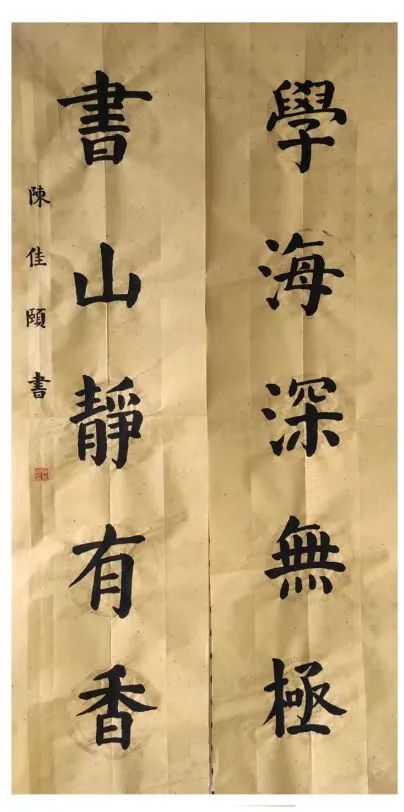 學海深無極
書山靜有香
陳佳頤書